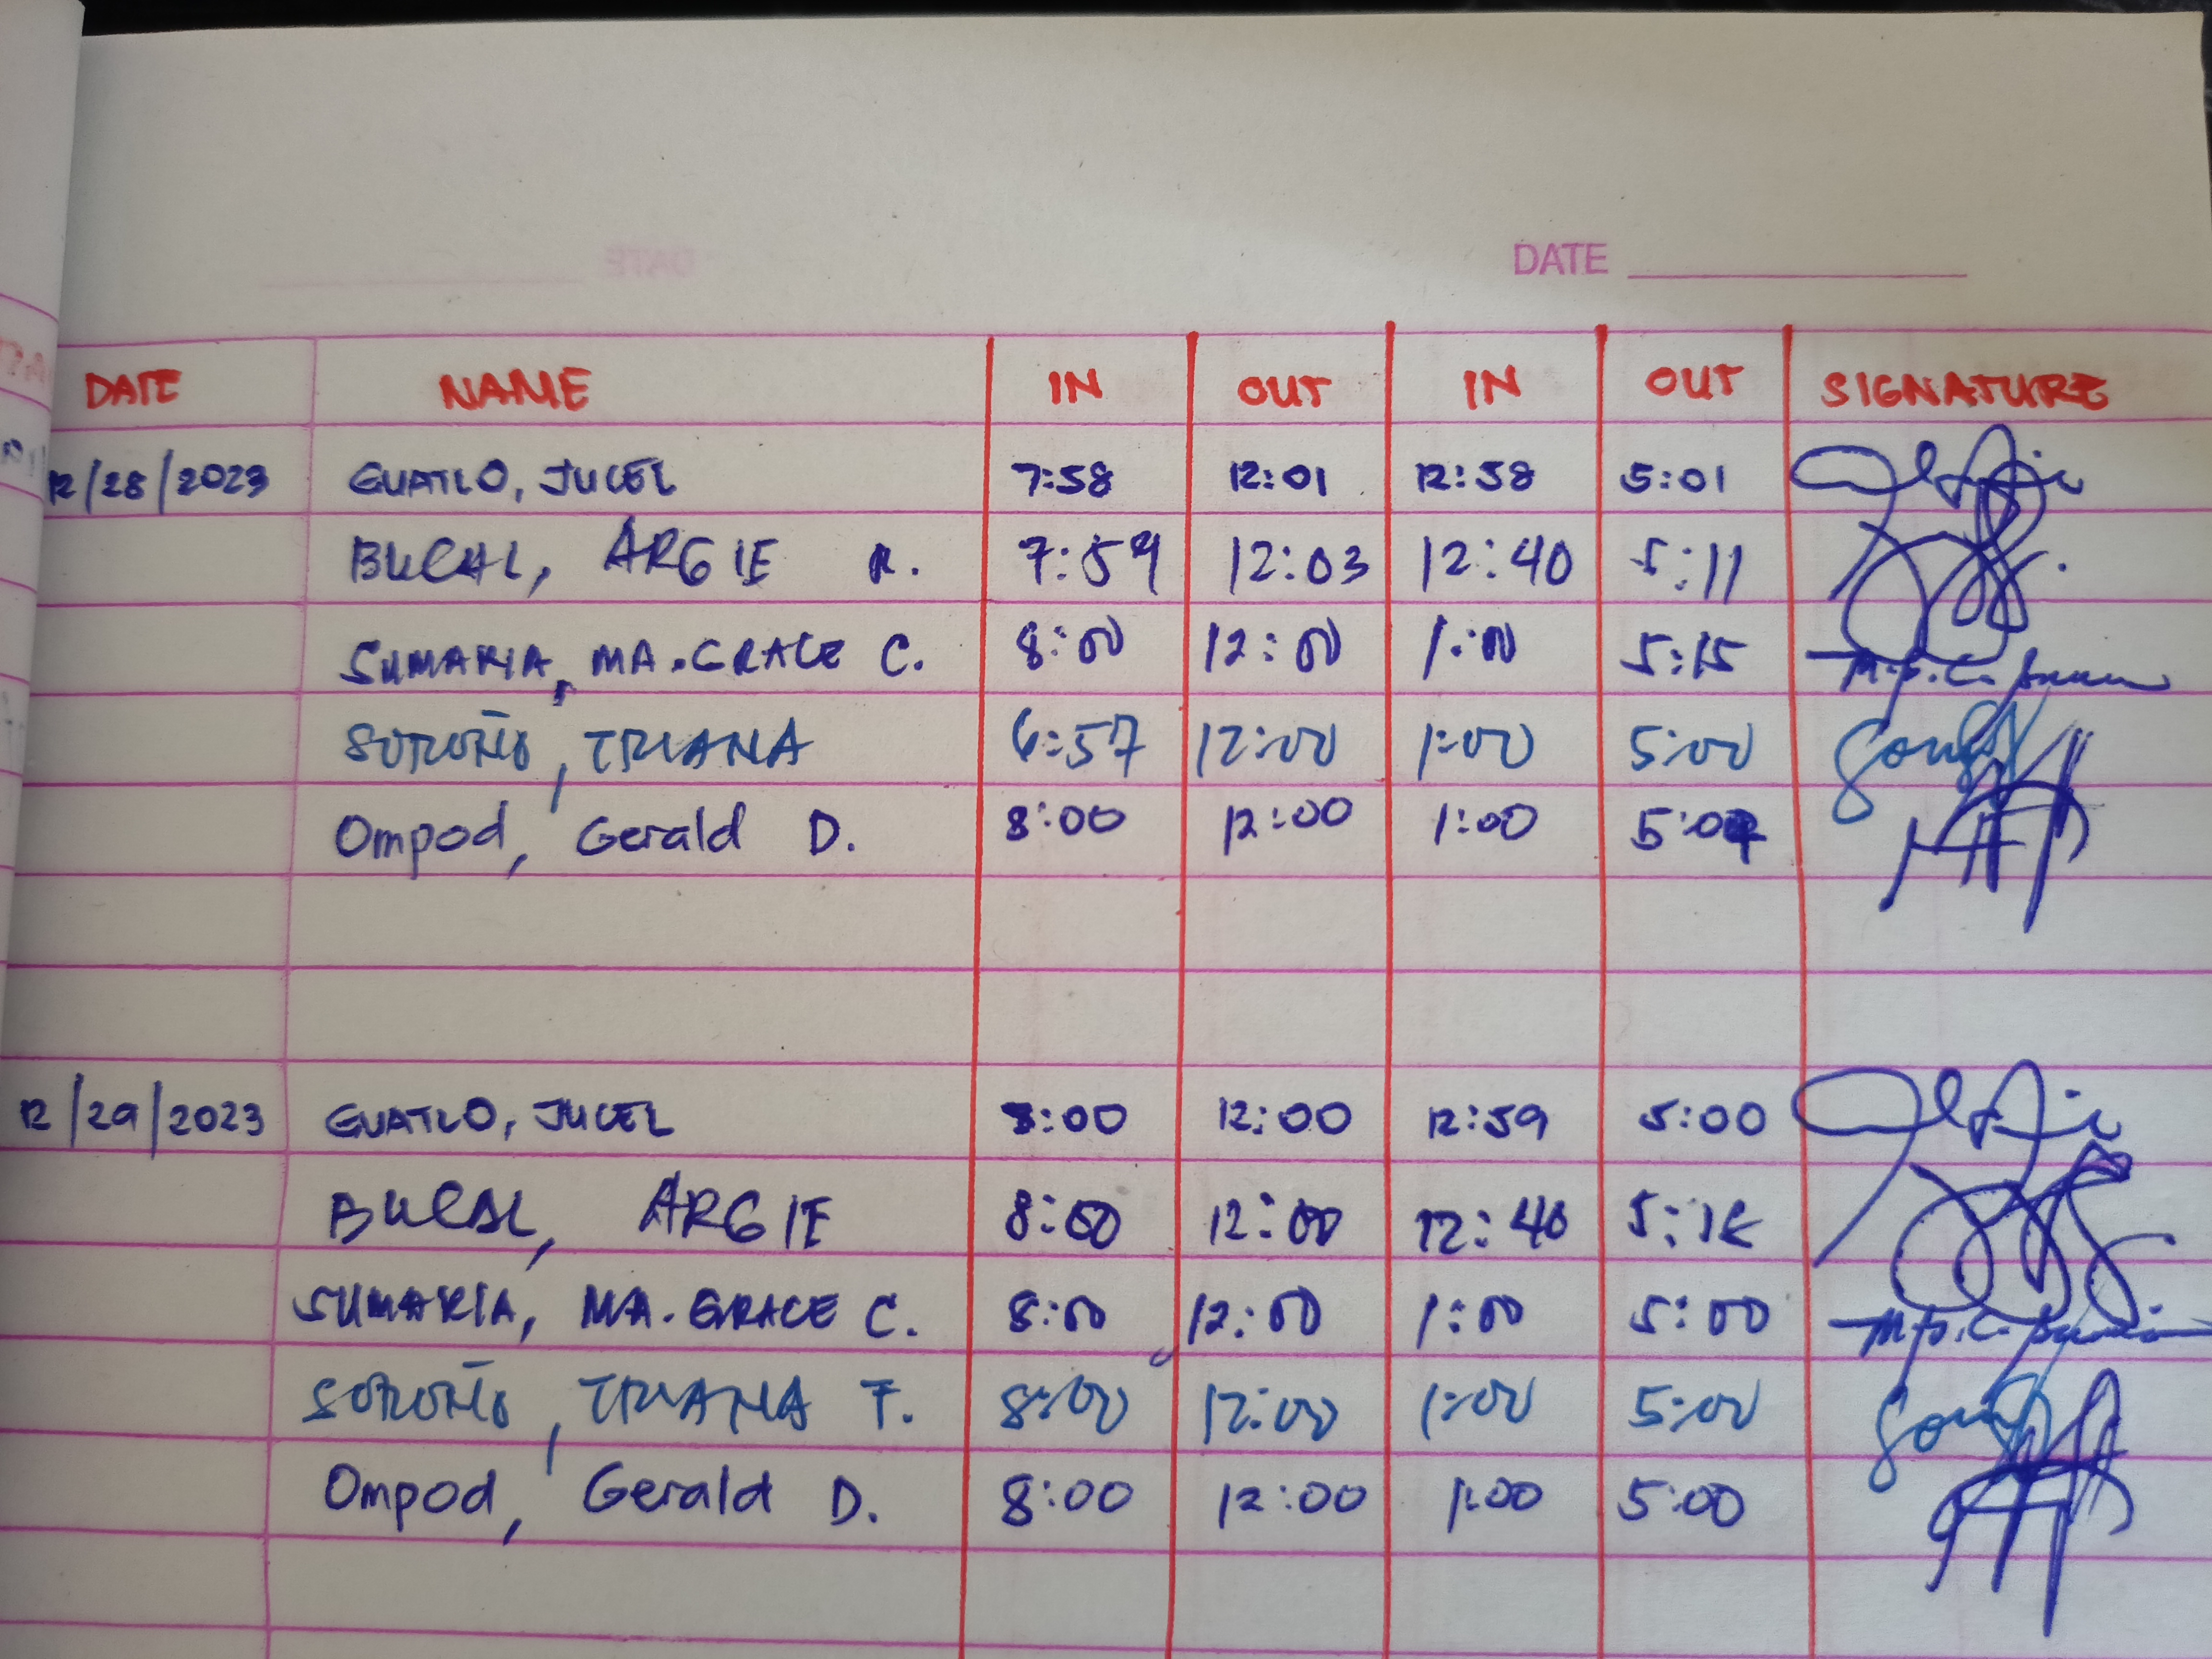 DATE
DATE NAME IN OUT IN OUT SIGNATURE
12/28/2023 GUATLO, JUCEL 7:58 12:01 12:58 5:01
BUCAL, ARGIE R. 7:59 12:03 12:40 5:11
SUMARIA, MA. GRACE C. 8:00 12:00 1:00 5:15
SOROÑO, TRIANA 6:57 12:00 1:00 5:00
Ompod, Gerald D. 8:00 12:00 1:00
12/29/2023 GUATLO, JUCEL 8:00 12:00 12:59 5:00
BUCAL, ARGIE 8:00 12:00 12:40
SUMARIA, MA. GRACE C. 8:00 12:00 1:00 5:00
SOROÑO, TRIANA F. 8:00 12:00 1:00 5:00
Ompod, Gerald D. 8:00 12:00 1:00 5:00